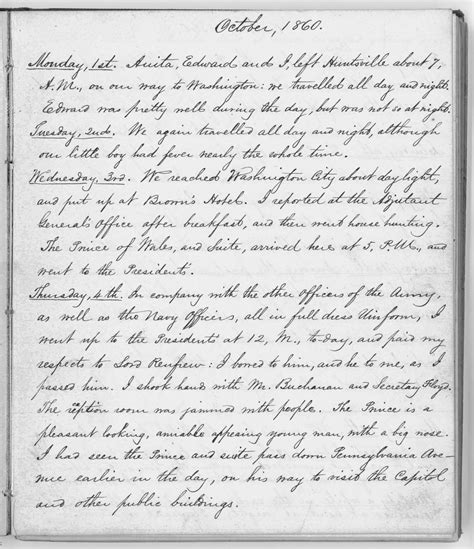 October, 1860.
Monday, 1st. Anita, Edward and I, left Huntsville about 7,
A.M., on our way to Washington: we travelled all day and night.
Edward was pretty well during the day, but was not so at night.
Tuesday, 2nd. We again travelled all day and night, although
our little boy had fever nearly the whole time.
Wednesday, 3rd. We reached Washington City about daylight,
and put up at Brown's Hotel. I reported at the Adjutant
General's Office after breakfast, and then went house hunting.
The Prince of Wales, and suite, arrived here at 5, P.M., and
went to the Presidents.
Thursday, 4th. In company with the other Officers of the Army,
as well as the Navy Officers, all in full dress Uniform, I
went up to the Presidents' at 12, M., to-day, and paid my
respects to Lord Renfrew: I bowed to him, and he to me, as I
passed him. I shook hands with Mr. Buchanan and Secretary Floyd.
The reception room was jammed with people. The Prince is a
pleasant looking, amiable appearing young man, with a big nose.
I had seen the Prince and suite pass down Pennsylvania Ave-
nue earlier in the day, on his way to visit the Capitol
and other public buildings.